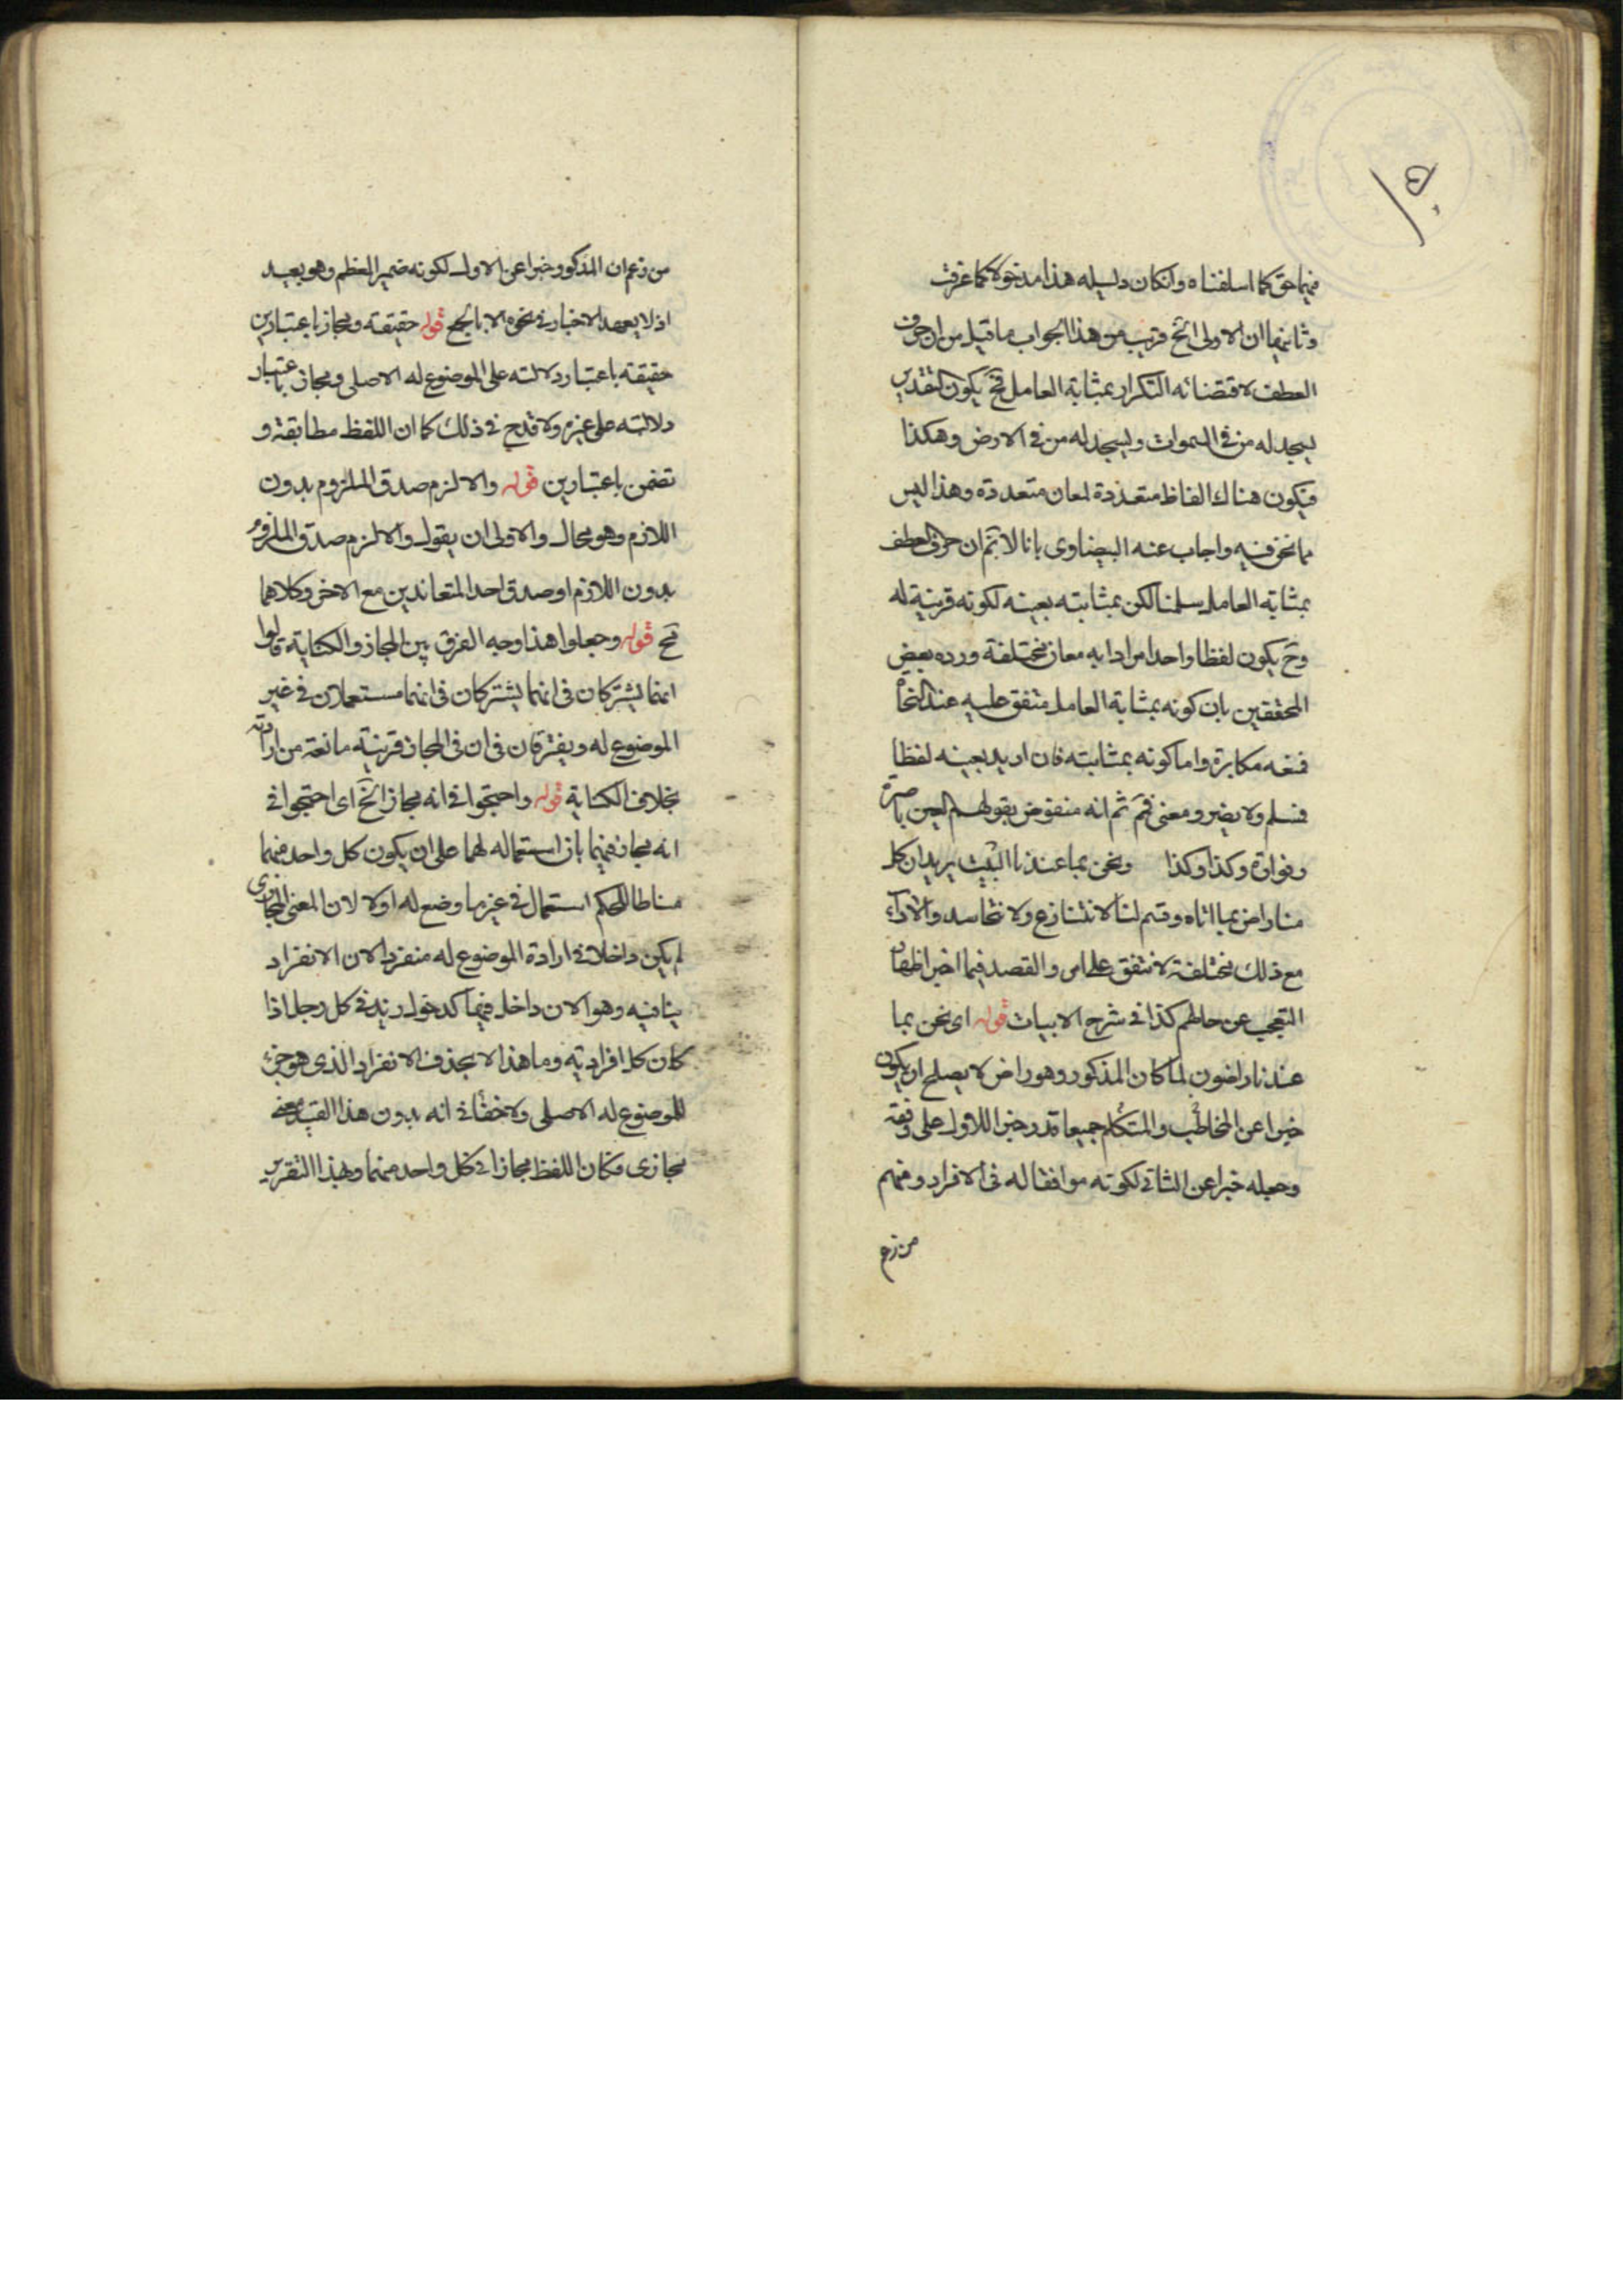 فيهما حق كما اسلفناه وانكان دليله هذا مدخولا كما عرفت
وثانيهما ان الاولى الخ قريب من هذا الجواب ما قيل من ان حرف
العطف لاقتضائه التكرار بمثابة العامل فح يكون كتقدير
يسجد له من في السموات ويسجد له من في الارض وهكذا
فيكون هناك الفاظ متعددة لمعان متعددة وهذا ليس
مما نحن فيه واجاب عنه البيضاوى بانا لا نم ان حرف العطف
بمثابة العامل سلمنا لكن بمثابته بعينه لكونه قرينة له
وح يكون لفظا واحدا مرادا به معان مختلفة ورده بعض
المحققين بان كونه بمثابة العامل متفق عليه عند النحاة
فمنعه مكابرة واما كونه بمثابته فان اريد بعينه لفظا
فمسلم ولا يضر ومعنى فم ثم انه منقوض بقولهم العين باصرة
وفوارة وكذا وكذا ونحن بما عندنا البيت يريد ان كل
منا راض بما اتاه وقسم لنا لا نتنازع ولا نتحاسد والآراء
مع ذلك مختلفة لا نتفق على امر والقصد فيما اخبر اظهار
التعجب عن حالهم كذا في شرح الابيات قوله اى نحن بما
عندنا راضون لما كان المذكور وهو راض لا يصلح ان يكون
خبرا عن المخاطب والمتكلم جميعا قدر خبر اللاول على وفقه
وجعله خبرا عن الثانى لكونه موافقا له في الافراد ومنهم
من زعم
من زعم ان المذكور خبرا عن الاول لكونه ضمير المعظم وهو بعيد
اذ لا يعهد الاخبار في نحوه الا بالجمع قوله حقيقة ومجاز باعتبارين
حقيقة باعتبار دلالته على الموضوع له الاصلى ومجاز باعتبار
دلالته على غيره ولا قدح في ذلك كما ان اللفظ مطابقة و
تضمن باعتبارين قوله والا لزم صدق الملزوم بدون
اللازم وهو محال والاولى ان يقول والا لزم صدق الملزوم
بدون اللازم او صدق احد المتعاندين مع الاخر وكلاهما
مح قوله وجعلوا هذا وجه الفرق بين المجاز والكناية قالوا
انهما يشتركان في انهما يشتركان في انهما مستعملان في غير
الموضوع له ويفترقان في ان في المجاز قرينة مانعة من ارادته
بخلاف الكناية قوله واحتجوا في انه مجاز الخ اى احتجوا في
انه مجاز فيهما بان استعماله لهما على ان يكون كل واحد منهما
مناطا للحكم استعمال في غير ما وضع له اولا لان المعنى المجازى
لم يكن داخلا في ارادة الموضوع له منفردا لان الانفراد
ينافيه وهو الان داخل فيهما كدخول زيد في كل رجل اذا
كان كل افراديه وما هذا الا بحذف الانفراد الذى هو جزء
للموضوع له الاصلى ولا خفاء في انه بدون هذا القيد معنى
مجازى فكان اللفظ مجازا في كل واحد منهما وبهذا التقرير